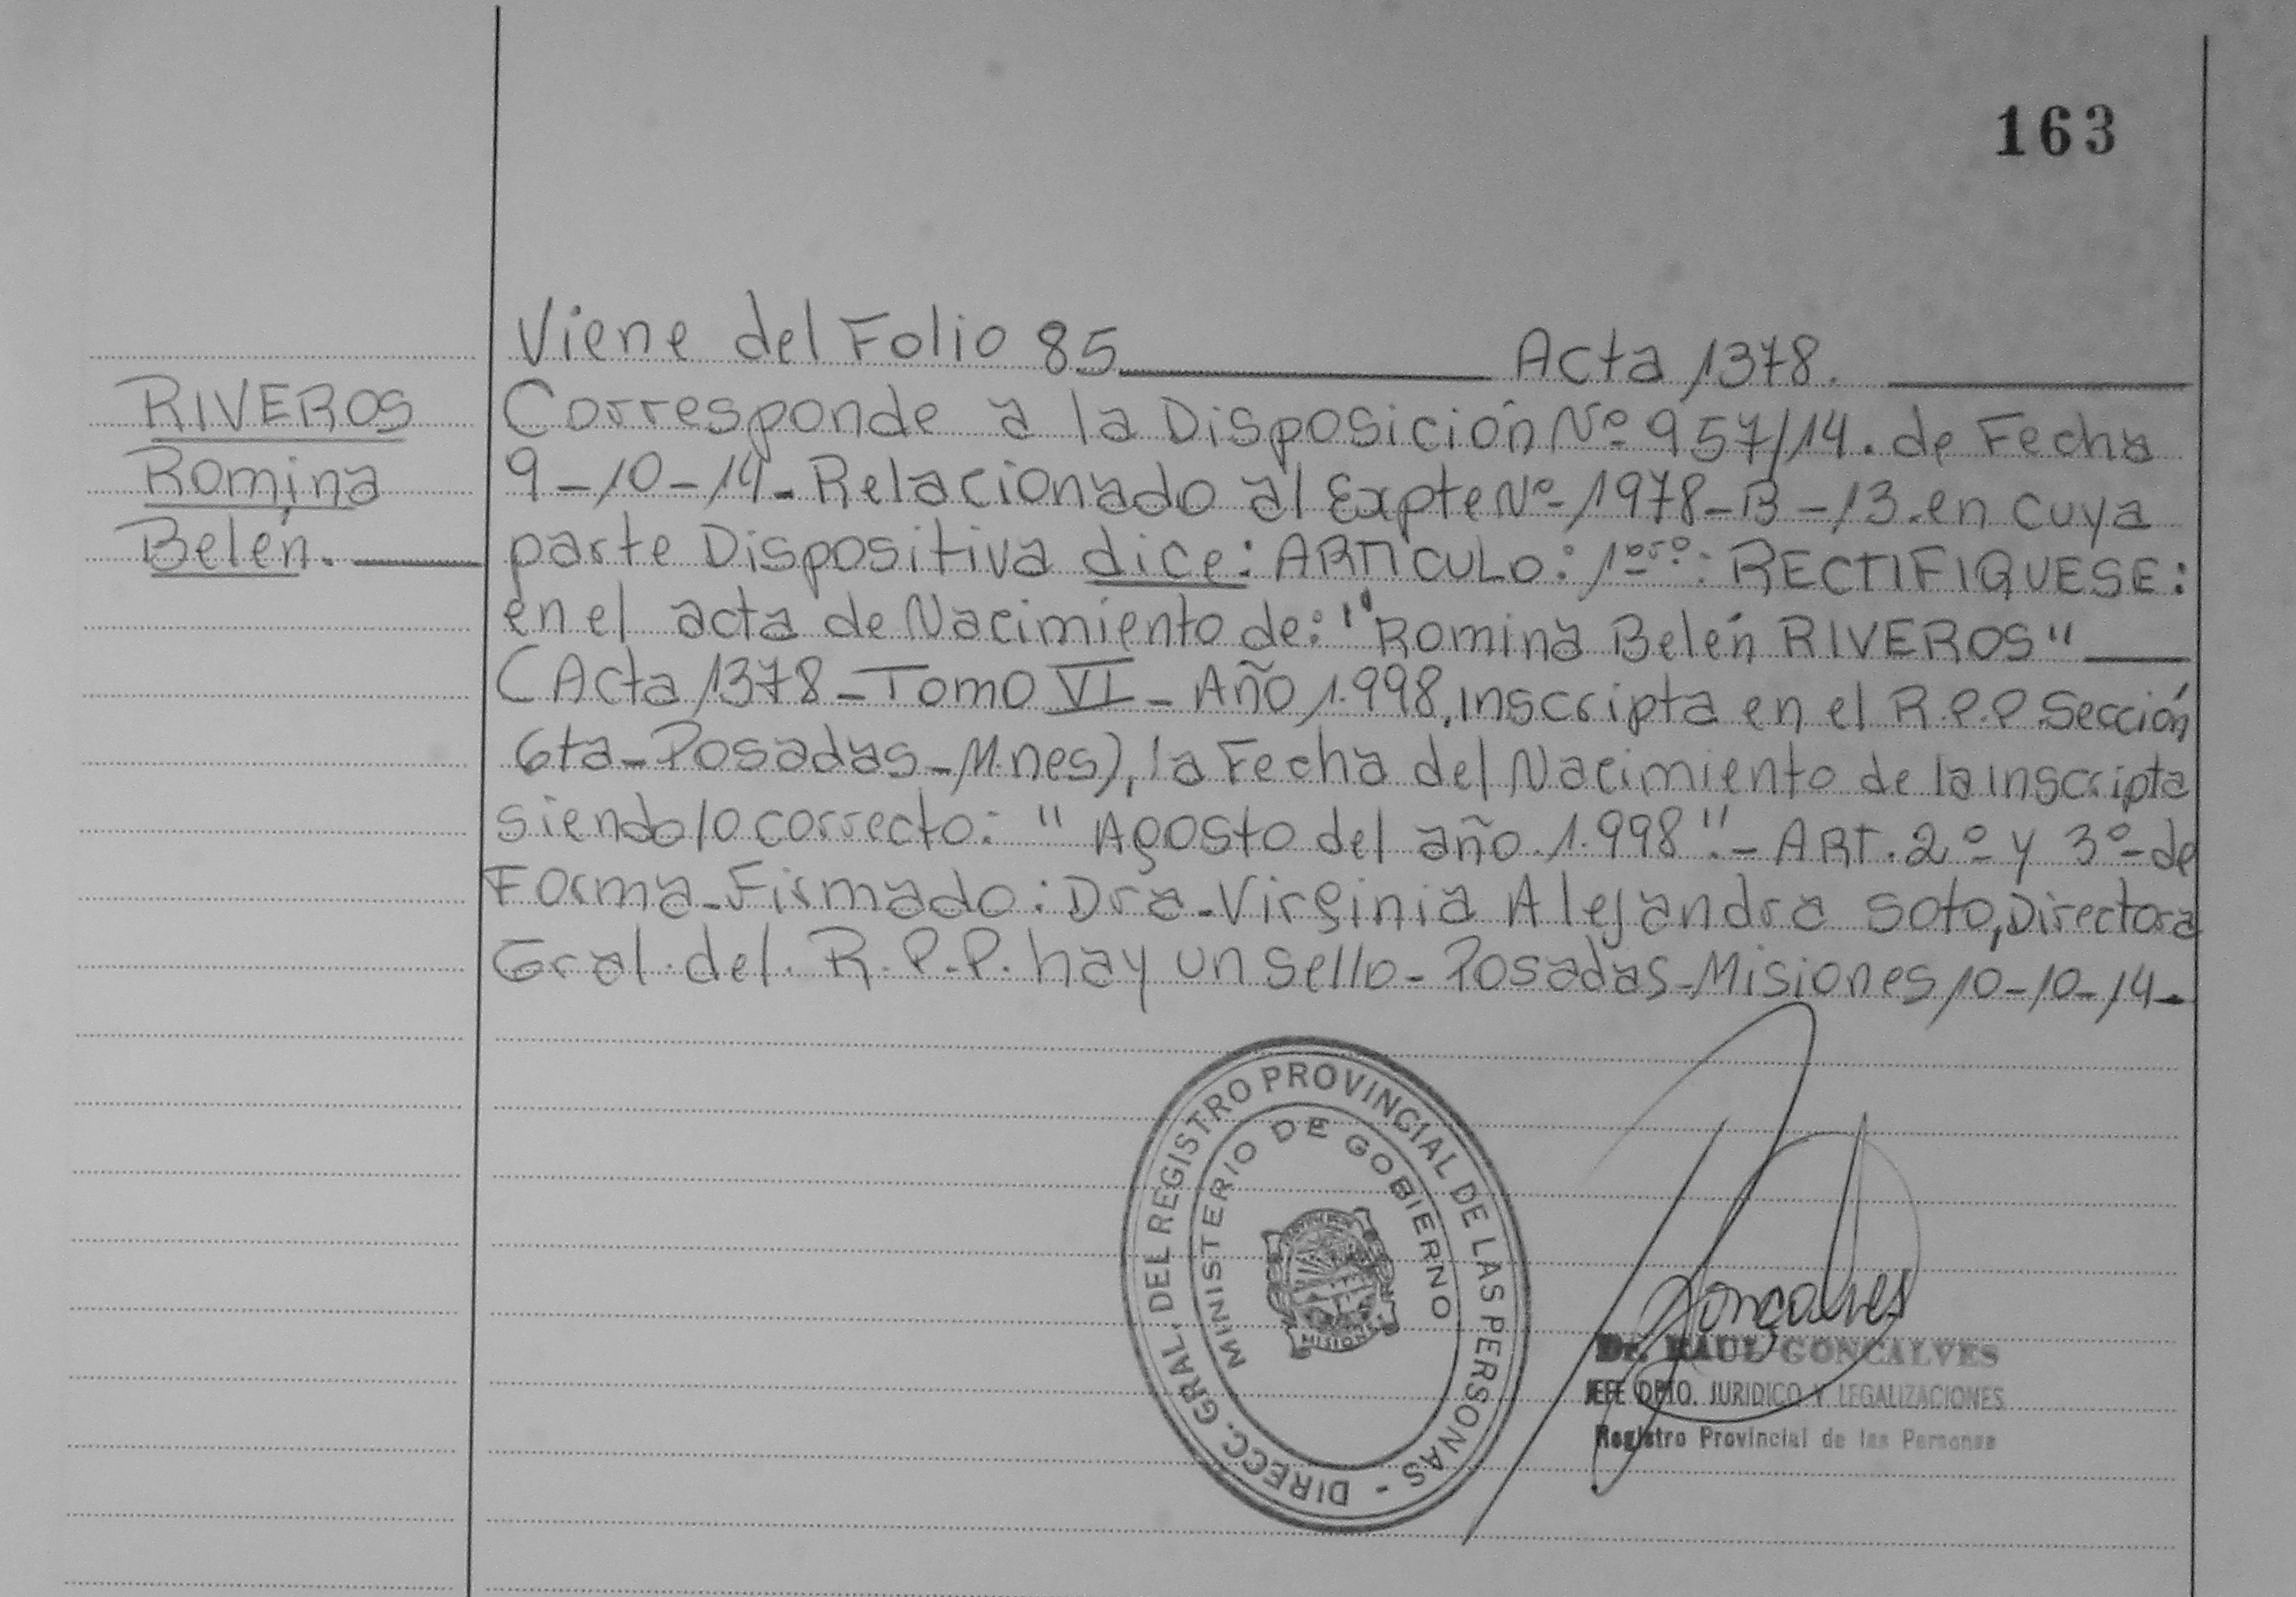 163
Viene del Folio 85 Acta 1378.
RIVEROS
Romina
Belén.
Corresponde a la Disposición Nº 957/14. de Fecha
9-10-14- Relacionado al Expte Nº-1978-B-13.en cuya
parte Dispositiva dice: ARTICULO: 1ºʳº: RECTIFIQUESE:
en el acta de Nacimiento de: "Romina Belén RIVEROS"
(Acta 1378-Tomo VI- Año 1.998, inscripta en el R.P.P. Sección
6ta-Posadas-Mnes), la Fecha del Nacimiento de la inscripta
siendo lo correcto: "Agosto del año 1.998".- ART. 2º y 3º-de
Forma-Firmado: Dra-Virginia Alejandra Soto, Directora
Gral. del. R.P.P. hay un sello- Posadas-Misiones 10-10-14-
DIRECC. GRAL. DEL REGISTRO PROVINCIAL DE LAS PERSONAS -
MINISTERIO DE GOBIERNO
MISIONES
Gonçalves
Dr. RAUL GONCALVES
JEFE DPTO. JURIDICO Y LEGALIZACIONES
Registro Provincial de las Personas